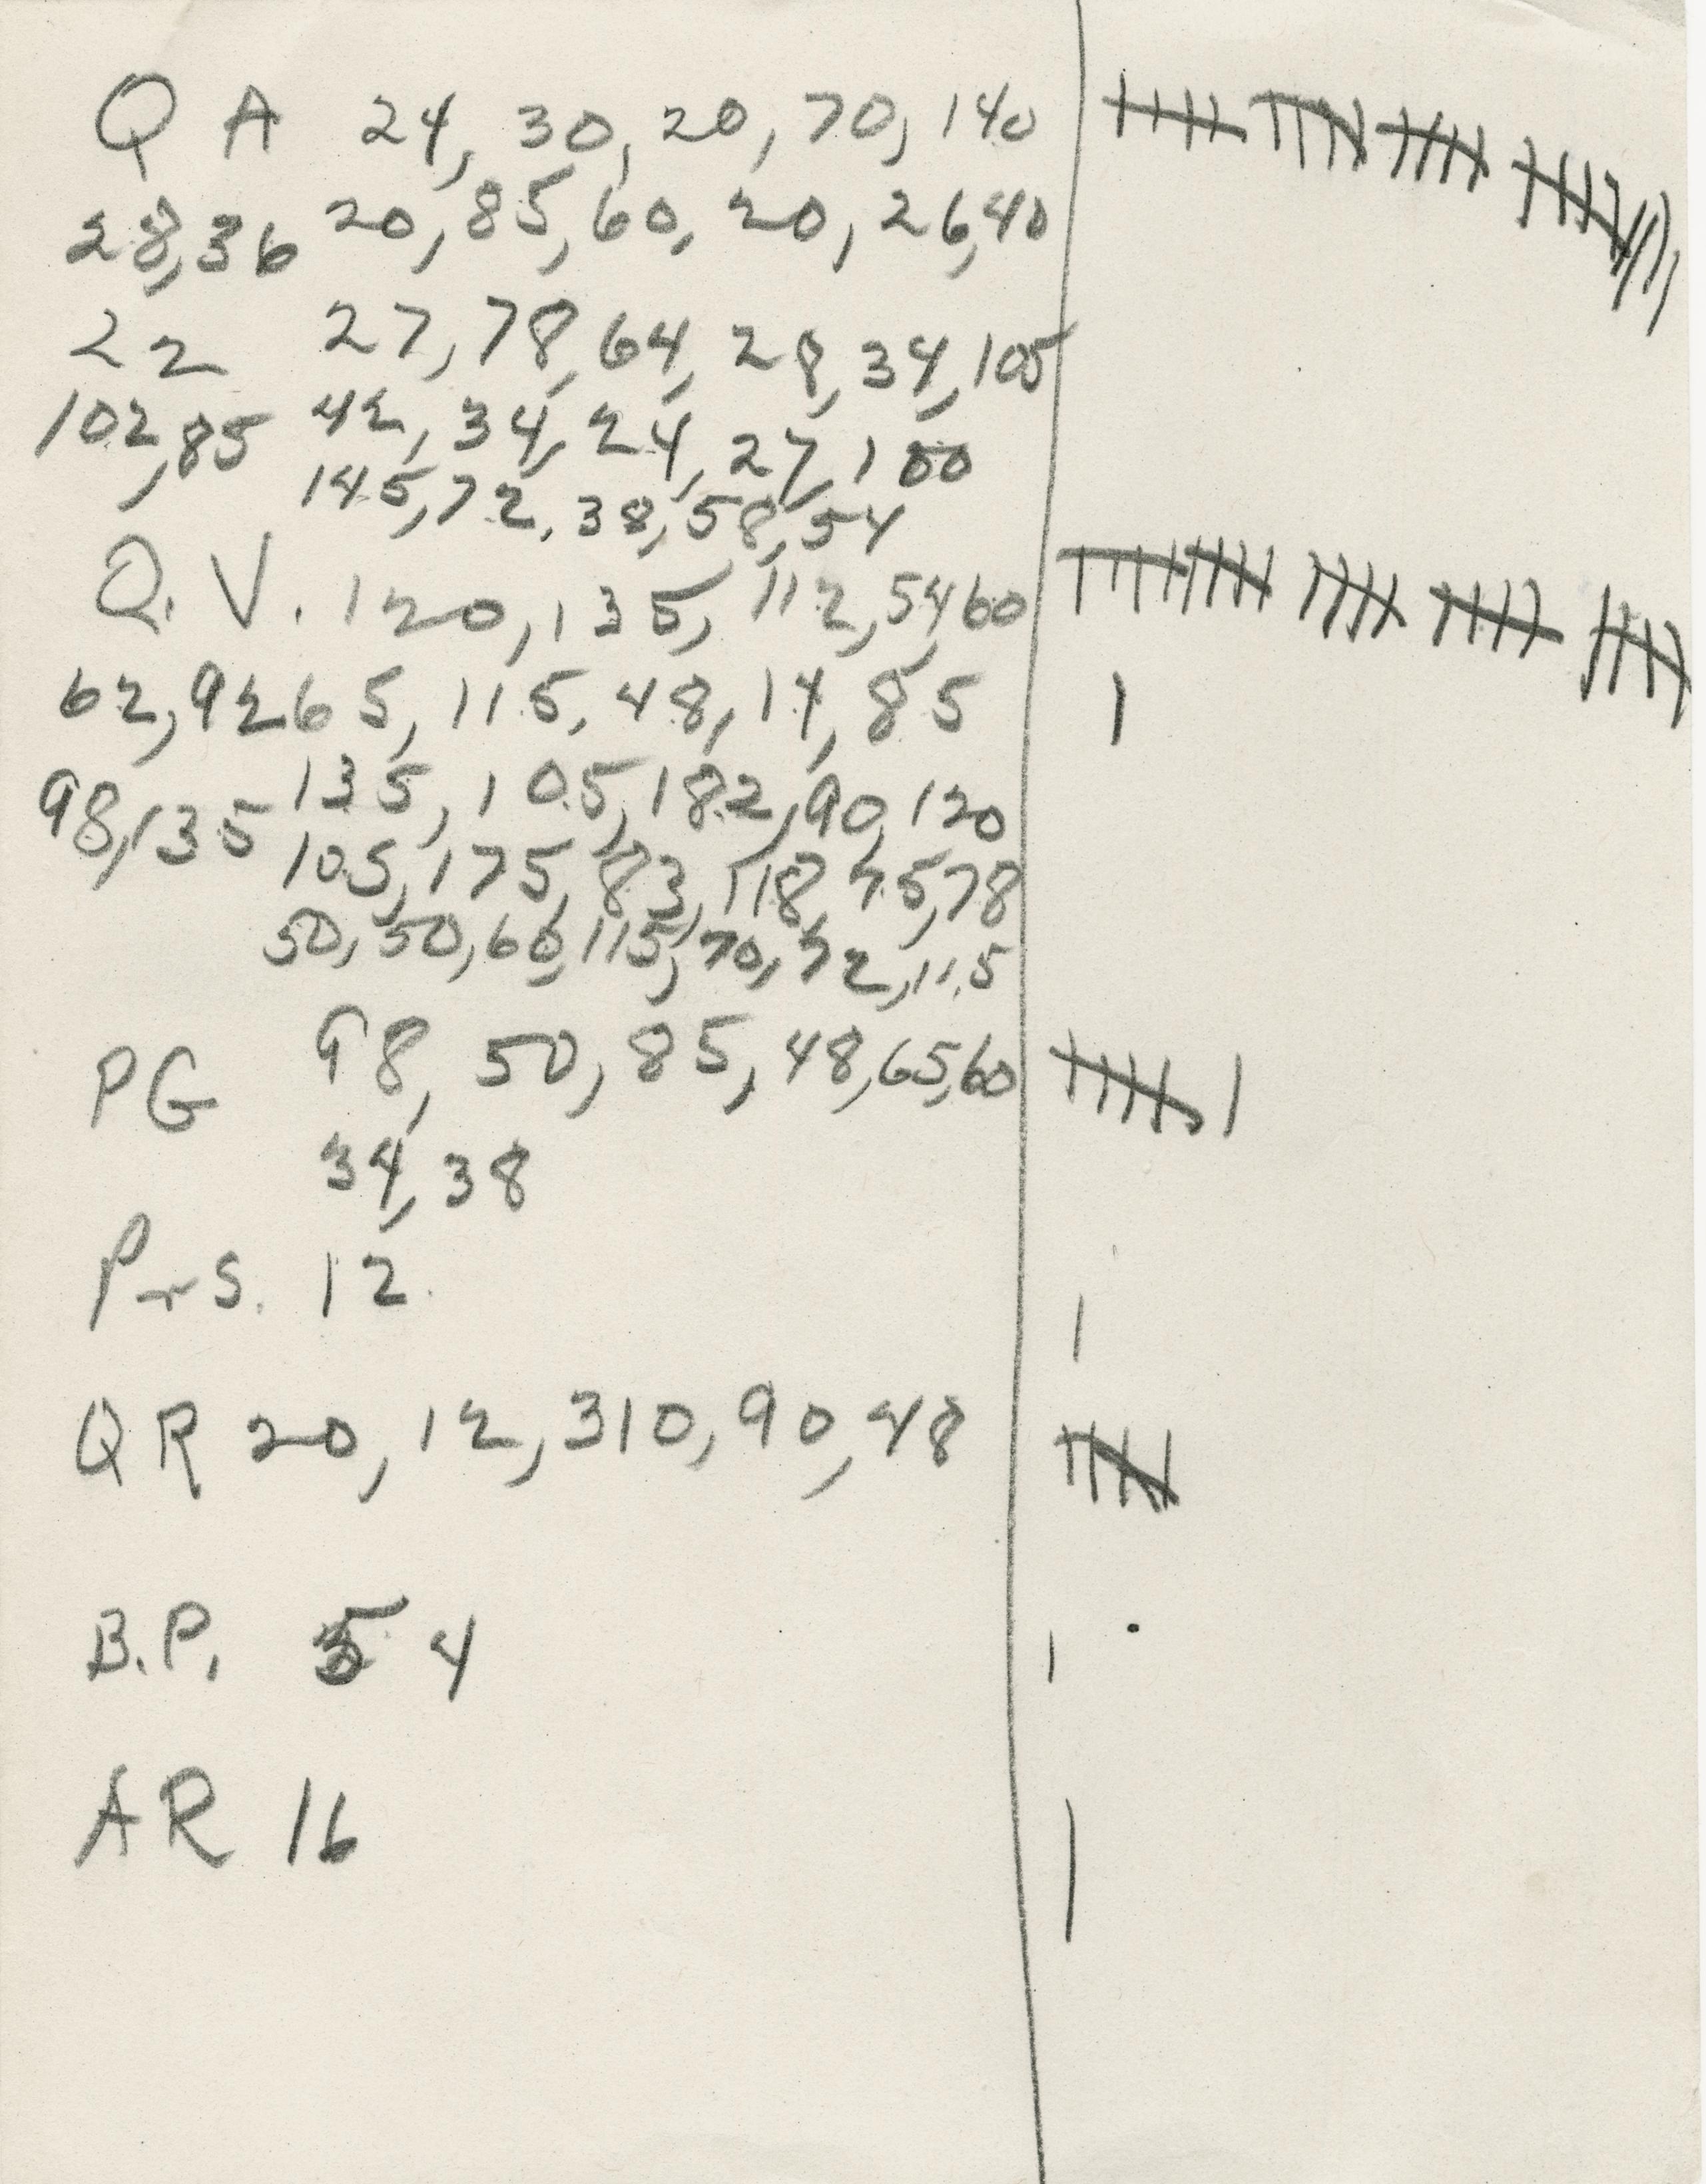 Q A 24, 30, 20, 70, 140
28, 36 20, 85, 60, 20, 26, 40
22 27, 78, 64, 28, 34, 105
102, 85 42, 34, 24, 27, 100
145, 72, 38, 58, 54
Q. V. 120, 135, 112, 54, 60
62, 92 65, 115, 48, 14, 85
98, 135 135, 105, 182, 90, 120
105, 175, 83, 118, 75, 78
50, 50, 60, 115, 70, 72, 115
PG 98, 50, 85, 48, 65, 60
34, 38
12.
QR 20, 12, 310, 90, 48
B.P. 54
AR 16